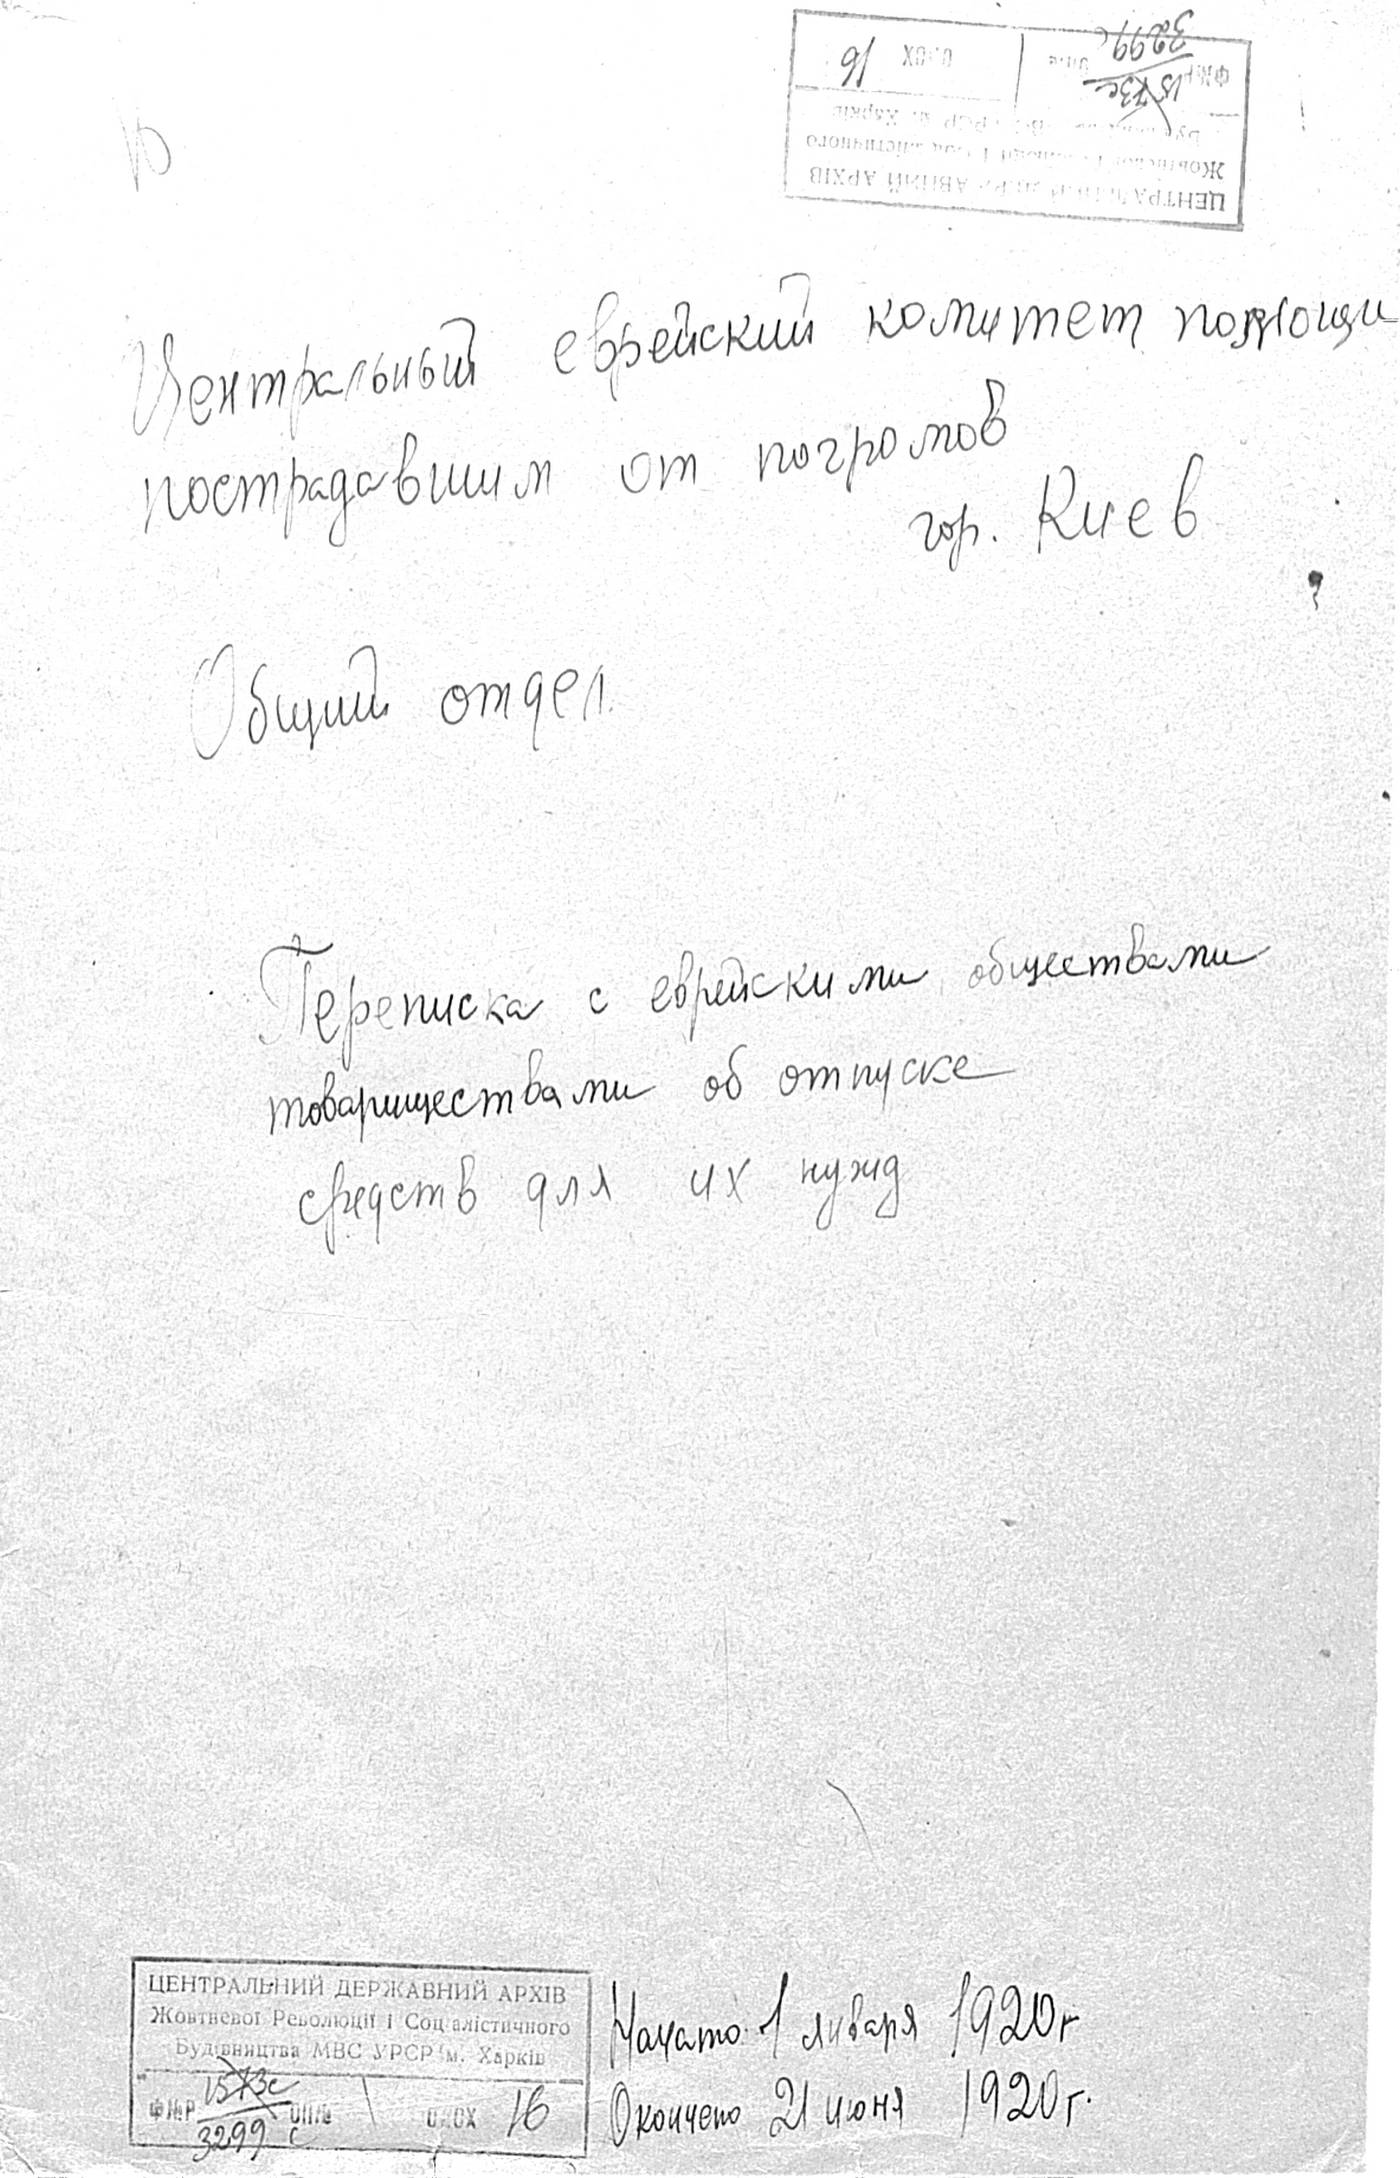 ЦЕНТРАЛЬНИЙ ДЕРЖАВНИЙ АРХІВ
Жовтневої Революції і Соціалістичного
Будівництва МВС УРСР м. Харків
Ф№Р 1573с ОП№ 1 ОД.ЗХ 16
3299 с
Центральный еврейский комитет помощи
пострадавшим от погромов
гор. Киев
Общий отдел.
Переписка с еврейскими обществами
товариществами об отпуске
средств для их нужд
ЦЕНТРАЛЬНИЙ ДЕРЖАВНИЙ АРХІВ
Жовтневої Революції і Соціалістичного
Будівництва МВС УРСР м. Харків
Ф№Р 1573с ОП№ 1 ОД.ЗХ 16
3299 с
Начато 1 января 1920г
Окончено 21 июня 1920г.